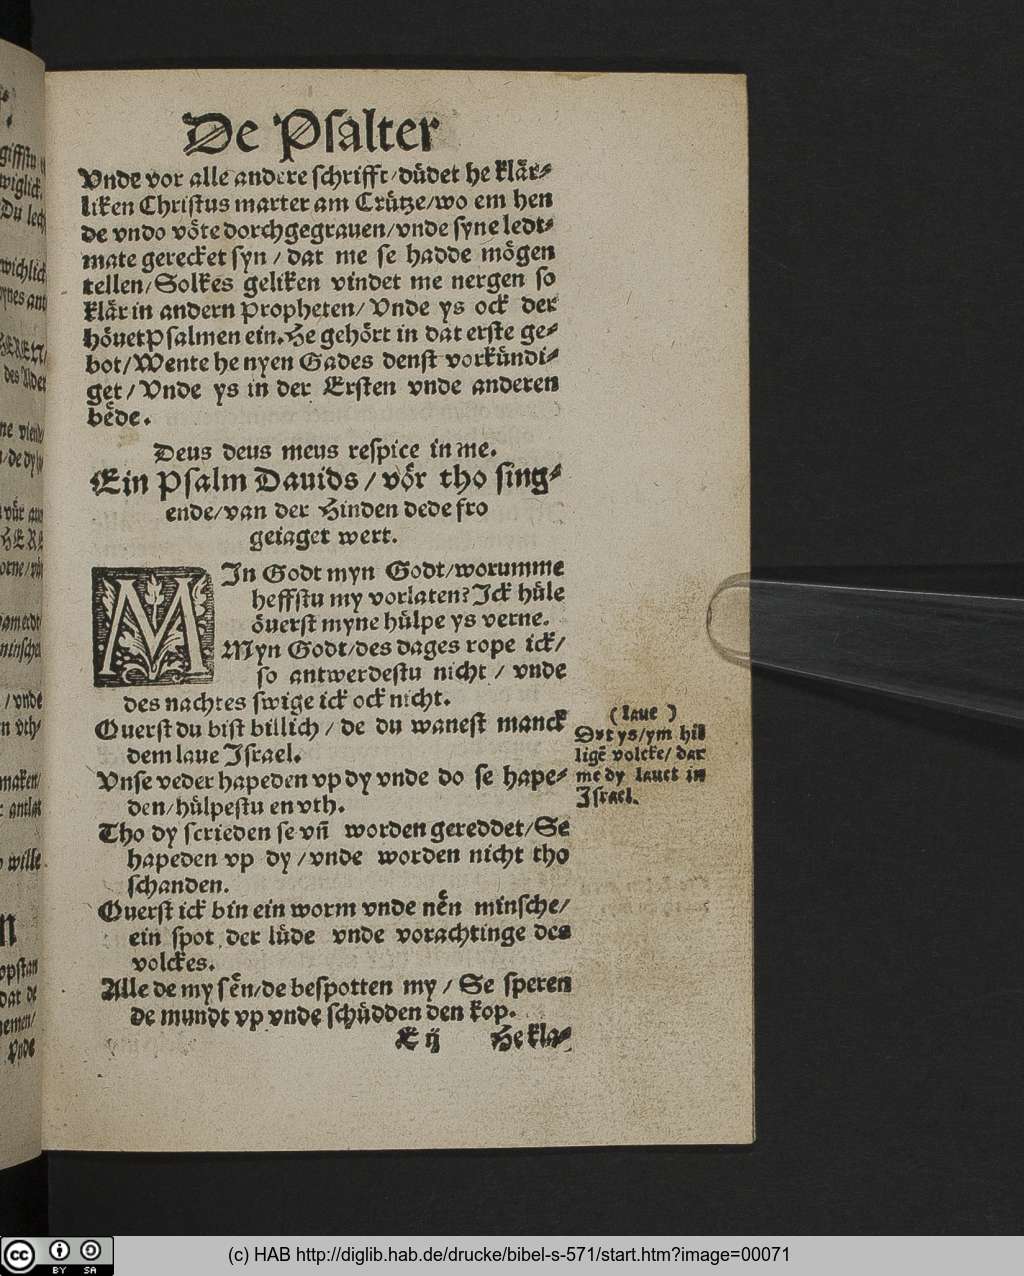 De Psalter
Vnde vor alle andere schrifft/düdet he klär⸗
liken Christus marter am Crütze/wo em hen
de vndo vöte dorchgegrauen/vnde syne ledt⸗
mate gerecket syn / dat me se hadde mögen
tellen/Solkes geliken vindet me nergen so
klär in andern Propheten/ Vnde ys ock der
höuetPsalmen ein.He gehört in dat erste ge⸗
bot/Wente he nyen Gades denst vorkündi⸗
get/ Vnde ys in der Ersten vnde anderen
bede.
Deus deus meus respice in me.
Ein Psalm Dauids / vör tho sing⸗
ende/van der Hinden dede fro
geiaget wert.
MIn Godt myn Godt/worumme
heffstu my vorlaten? Ick hüle
öuerst myne hülpe ys verne.
Myn Godt/des dages rope ick/
so antwerdestu nicht / vnde
des nachtes swige ick ock nicht.
Ouerst du bist billich / de du wanest manck
dem laue Israel.
Vnse veder hapeden vp dy vnde do se hape⸗
den/hülpestu en vth.
Tho dy scrieden se vn̄ worden gereddet/Se
hapeden vp dy /vnde worden nicht tho
schanden.
Ouerst ick bin ein worm vnde nēn minsche/
ein spot der lüde vnde vorachtinge des
volckes.
Alle de my sēn/de bespotten my / Se speren
de mundt vp vnde schüdden den kop.
E ij He kla⸗
(laue )
Dyt ys/ym hil
ligē volcke/ dar
me dy lauet in
Israel.
giffstu
wiglick.
Du lech
wichlick
des Alder
/ vnde
maken/
wille
vpstan
dat de
nemen/
Vnde
(c) HAB http://diglib.hab.de/drucke/bibel-s-571/start.htm?image=00071
cc
BY SA